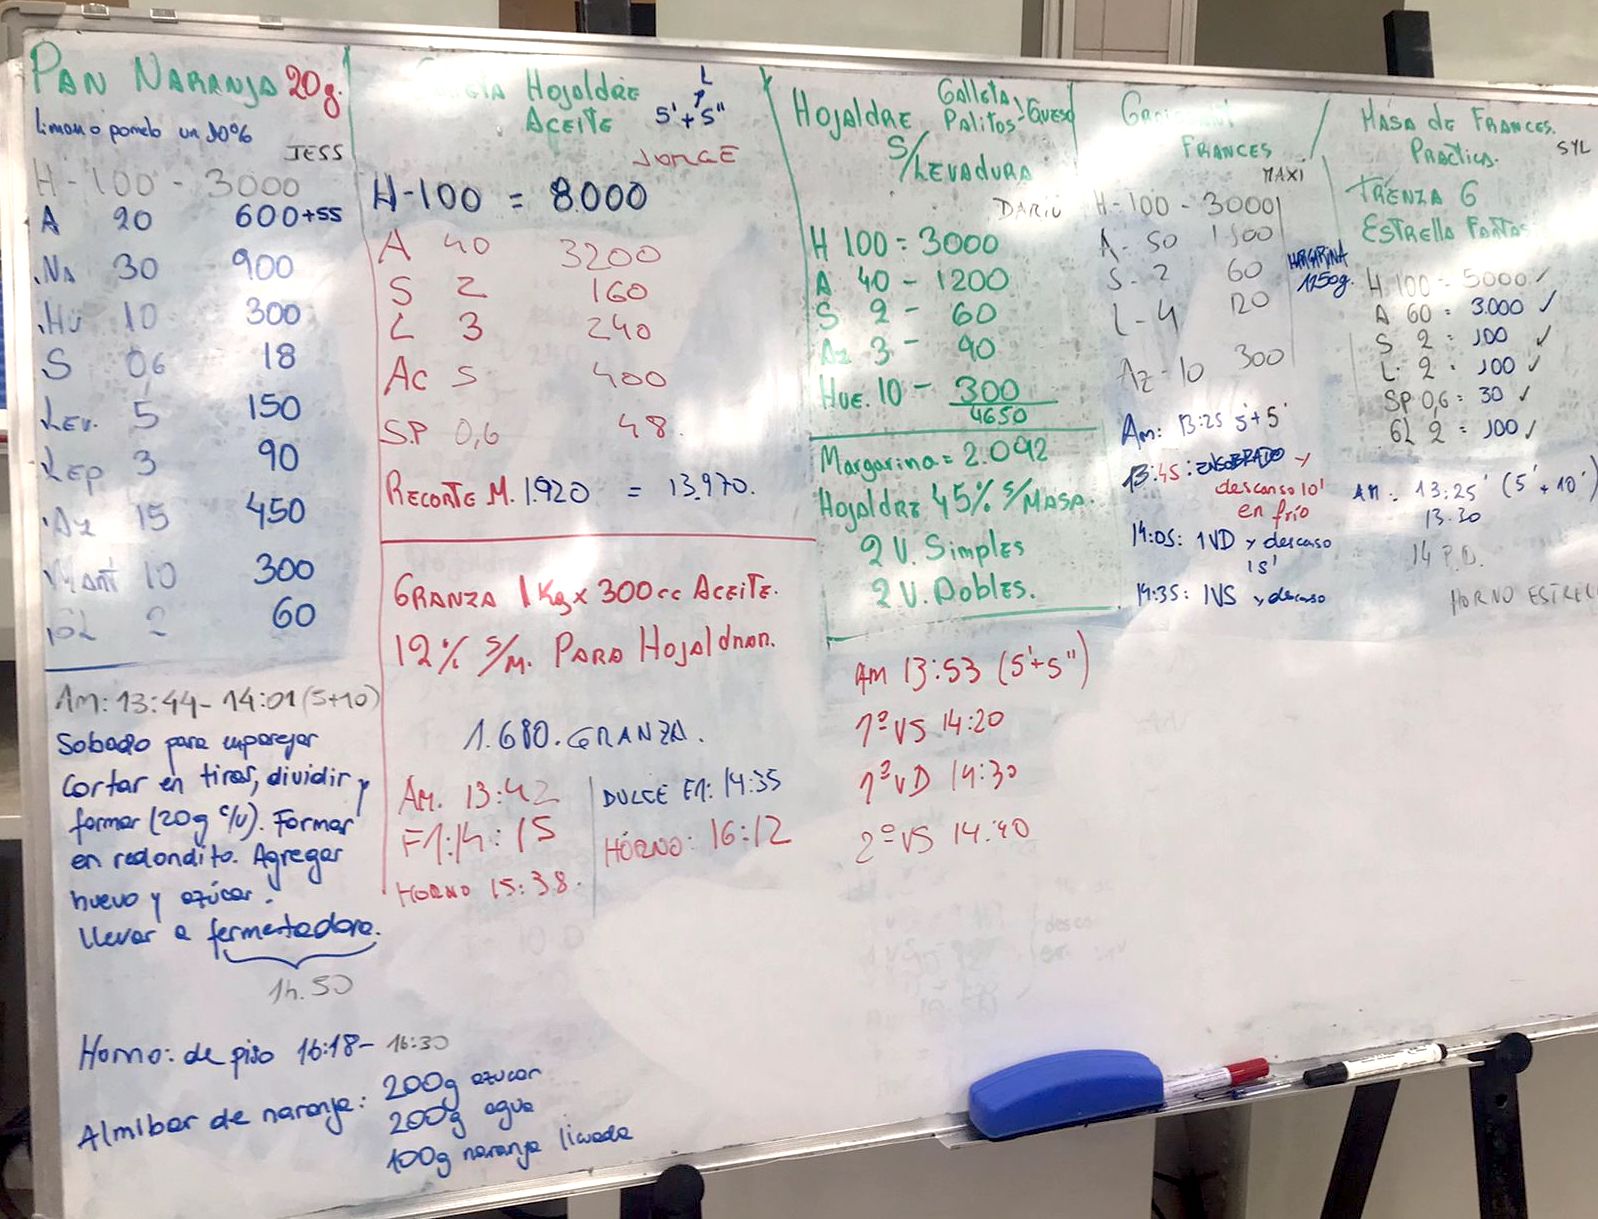 PAN NARANJA 20g.
limon o pomelo un 10%
JESS
H - 100 - 3000
A 20 600+55
Na 30 900
Hu 10 300
S 0,6 18
Lev. 5 150
Lep 3 90
Az 15 450
Mant 10 300
GL 2 60
Am: 13:44 - 14:01 (5+10)
Sobado para emparejar
Cortar en tiras, dividir y
formar (20g c/u). Formar
en redondito. Agregar
huevo y azúcar.
Llevar a fermentadora.
1h. 50
Horno: de piso 16:18 - 16:30
Almibar de naranja: 200g azucar
200g agua
100g naranja licuada
Hojaldre
ACEITE
L
5'+5''
JORGE
H-100 = 8000
A 40 3200
S 2 160
L 3 240
Ac 5 400
SP 0,6 48.
RECORTE M. 1.920 = 13.970.
GRANZA 1Kg x 300cc ACEITE.
12% S/M. PARA Hojaldrar.
1.680. GRANZA.
AM. 13:42
F1: 14:15
HORNO 15:38.
DULCE F1: 14:35
HORNO: 16:12
Hojaldre Galleta
Palitos - Queso
S/LEVADURA
DARIO
H 100 = 3000
A 40 - 1200
S 2 - 60
Az 3 - 90
HUE. 10 - 300
4650
Margarina = 2.092
Hojaldre 45% S/MASA.
2 V. Simples
2 V. Dobles.
AM 13:53 (5'+5'')
1º VS 14:20
1º VD 14:30
2º VS 14:40
FRANCES
MAXI
H - 100 - 3000
A - 50 1500
S - 2 60
L - 4 120
Az - 10 300
MARGARINA
1250g.
Am: 13:25 5'+5'
13:45: ENSOBRADO y
descanso 10'
en frío
14:05: 1VD y descaso
15'
14:35: 1VS y descaso
MASA de FRANCES.
PRACTICA.
SYL
TRENZA 6
H 100 - 5000 ✓
A 60 = 3.000 ✓
S 2 = 100 ✓
L. 2 = 100 ✓
SP 0,6 = 30 ✓
GL 2 = 100 ✓
AM: 13:25' (5'+10')
13.30
14 P.D.